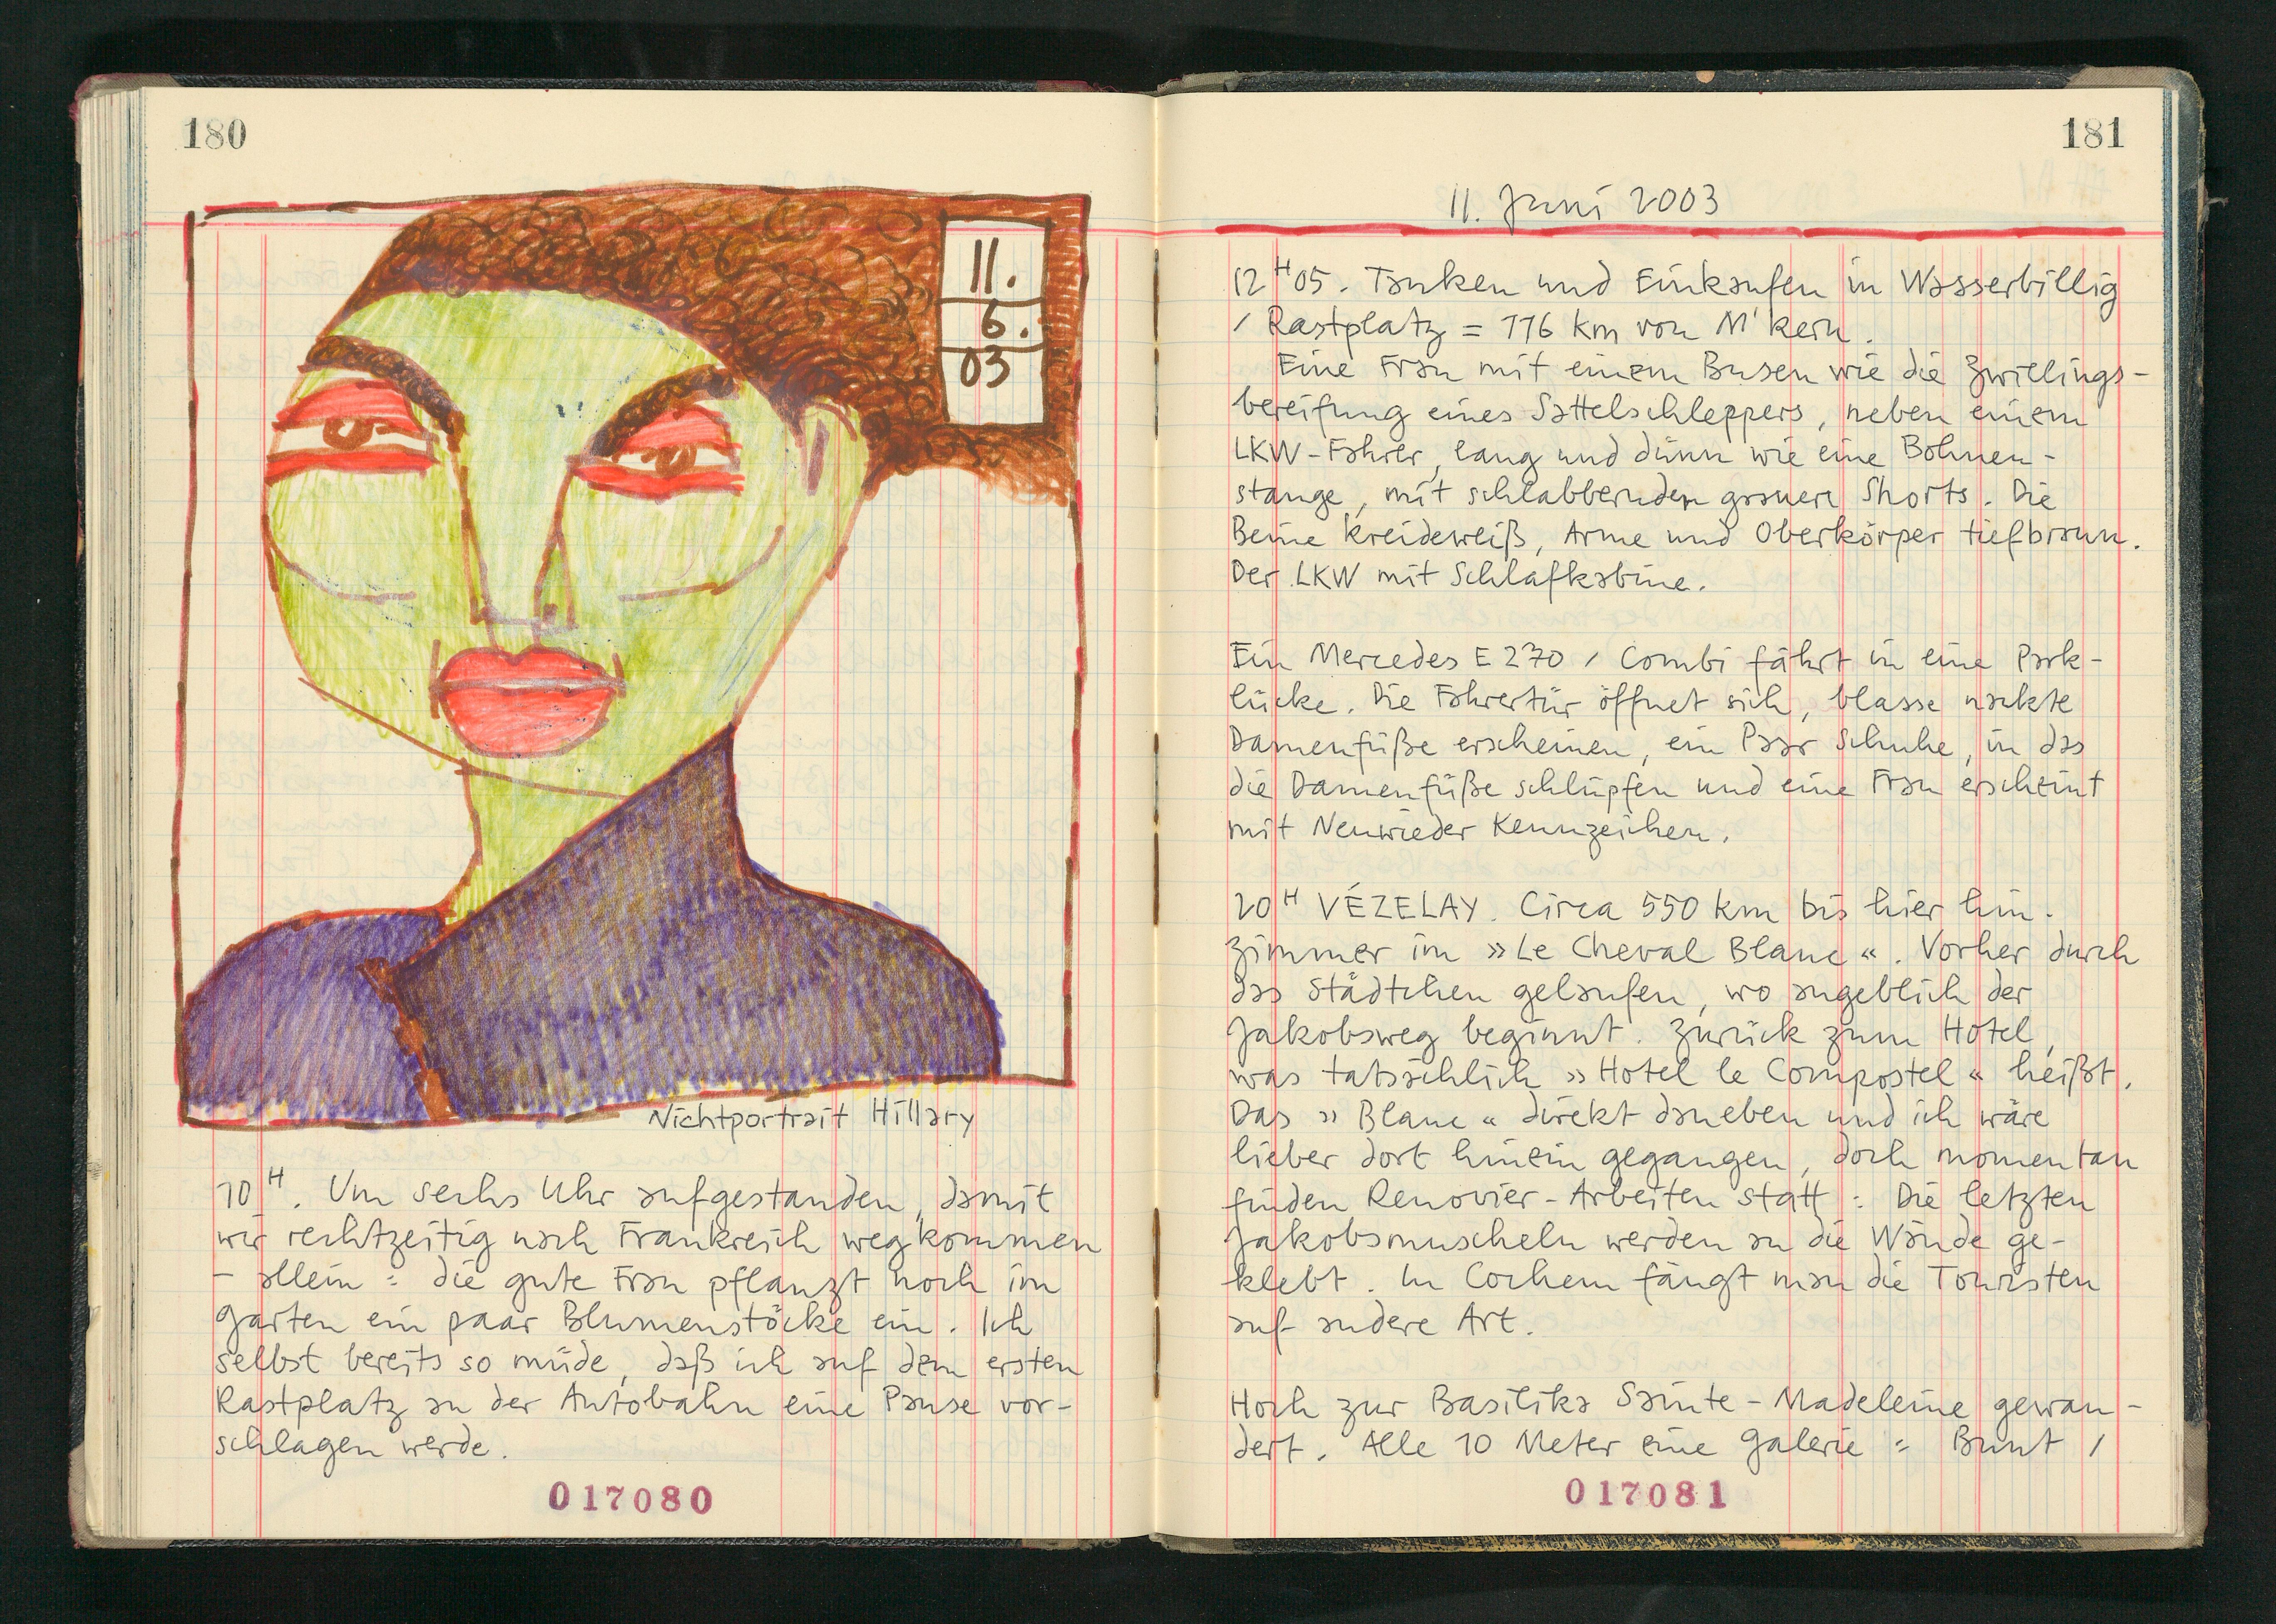 180
11.
6.
03
Nichtportrait Hillary
10 H. Um sechs Uhr aufgestanden, damit
wir rechtzeitig nach Frankreich wegkommen
– allein : die gute Frau pflanzt noch im
Garten ein paar Blumenstöcke ein. Ich
selbst bereits so müde, daß ich auf dem ersten
Rastplatz an der Autobahn eine Pause vor-
schlagen werde.
017080
181
11. Juni 2003
12 H 05. Tanken und Einkaufen in Wasserbillig
/ Rastplatz = 116 km von M'kern.
Eine Frau mit einem Busen wie die Zwillings-
bereifung eines Sattelschleppers, neben einem
LKW-Fahrer, lang und dünn wie eine Bohnen-
stange, mit schlabbernden grauen Shorts. Die
Beine kreideweiß, Arme und Oberkörper tiefbraun.
Der LKW mit Schlafkabine.
Ein Mercedes E 270 / Combi fährt in eine Park-
lücke. Die Fahrertür öffnet sich, blasse nackte
Damenfüße erscheinen, ein Paar Schuhe, in das
die Damenfüße schlüpfen und eine Frau erscheint
mit Neuwieder Kennzeichen.
20 H VÉZELAY. Circa 550 km bis hier hin.
Zimmer im »Le Cheval Blanc«. Vorher durch
das Städtchen gelaufen, wo angeblich der
Jakobsweg beginnt. Zurück zum Hotel,
was tatsächlich »Hotel le Compostel« heißt.
Das »Blanc« direkt daneben und ich wäre
lieber dort hinein gegangen, doch momentan
finden Renovier-Arbeiten statt : Die letzten
Jakobsmuscheln werden an die Wände ge-
klebt. In Cochem fängt man die Touristen
auf andere Art.
Hoch zur Basilika Sainte-Madeleine gewan-
dert. Alle 10 Meter eine Galerie = Bunt /
017081